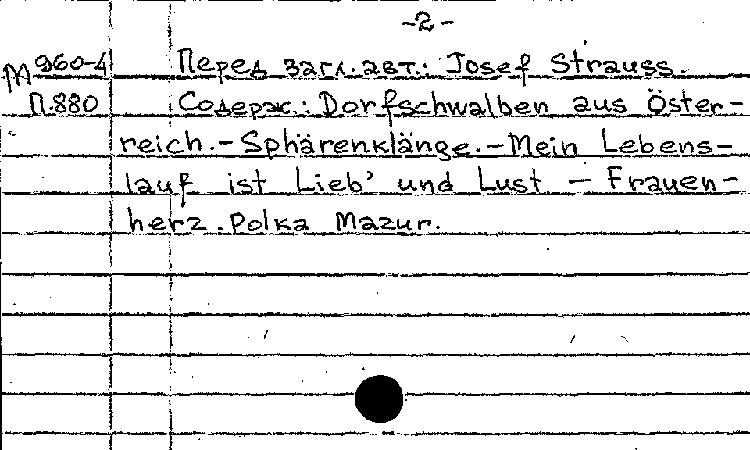 -2-
М 960-4 Перед загл. авт.: Josef Strauss.
П.880 Содерж.: Dorfschwalben aus Öster-
reich.-Sphärenklänge.-Mein Lebens-
lauf ist Lieb' und Lust - Frauen-
herz. Polka Mazur.